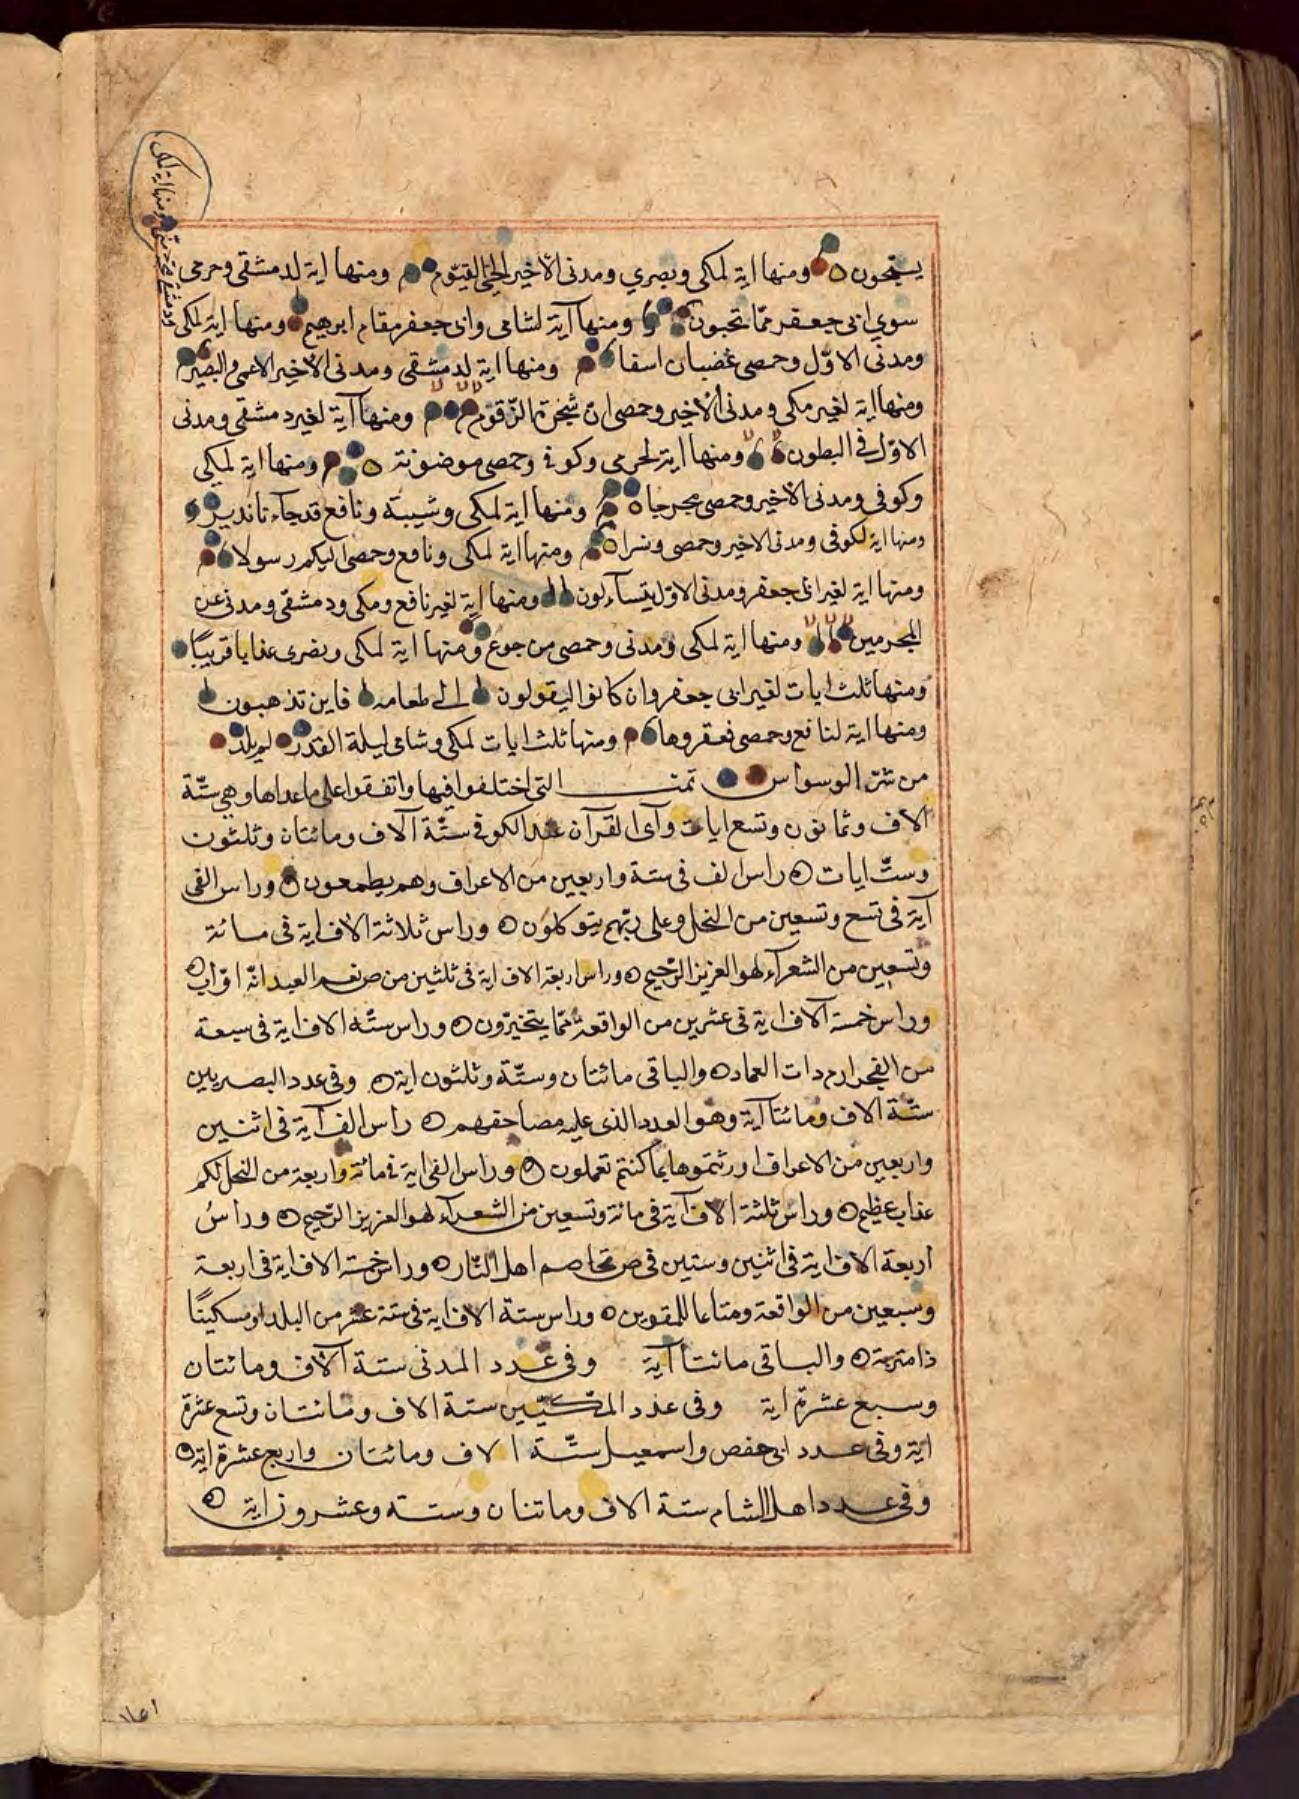 ومنها اية لمكي
ومنها اية لمكي وبصري ومدني الاخير الحي القيّوم ومنها اية لدمشقي وحرمي
سوي ابي جعفر ممّا تحبون ومنها آية لشامي وابي جعفر مقام ابرهيم ومنها اية لمكي
ومدني الاوّل وحمصي غضبان اسفا ومنها اية لدمشقي ومدني الاخير الاعمى والبصير
ومنها اية لغير مكي ومدني الاخير وحمصي ان شجرة الزّقوم ومنها آية لغير دمشقي ومدني
الاوّل في البطون ومنها اية لحرمي وكوفي وحمصي موضونة ومنها اية لمكي
وكوفي ومدني الاخير وحمصي مخرجا ومنها اية لمكي وشيبة ونافع قد جاءنا نذير
ومنها اية لكوفي ومدني الاخير وحمصي ونسرا ومنها اية لمكي ونافع وحمصي اليكم رسولا
ومنها اية لغير ابي جعفر ومدني الاوّل يتسآءلون ومنها اية لغير نافع ومكي ودمشقي ومدني عن
المجرمين ومنها اية لمكي ومدني وحمصي من جوع ومنها اية لمكي وبصري عذابا قريبًا
ومنها ثلث ايات لغير ابي جعفر وان كانوا ليقولون الى طعامه فاين تذهبون
ومنها اية لنافع وحمصي فعقروها ومنها ثلث ايات لمكي وشامي ليلة القدر لم يلد
من شرّ الوسواس تمت التي اختلفوا فيها واتفقوا على ما عداها وهي ستّة
الاف وثمانون وتسع ايات وآي القرآن عند الكوفي ستّة آلاف ومائتان وثلثون
وستّ ايات راس الف في ستة واربعين من الاعراف وهم يطمعون وراس الفي
آية في تسع وتسعين من النحل وعلى ربّهم يتوكلون وراس ثلاثة الاف اية في مائة
وتسعين من الشعرآء لهو العزيز الرّحيم وراس اربعة الاف اية في ثلثين من ص نعم العبد انّه اوّاب
وراس خمسة آلاف اية في عشرين من الواقعة ممّا يتخيّرون وراس ستّة الاف اية في سبعة
من الفجر ارم ذات العماد والباقي مائتان وستّة وثلثون اية وفي عدد البصريين
ستّة الاف ومائتا آية وهو العدد الذي عليه مصاحفهم راس الف آية في اثنين
واربعين من الاعراف اورثتموها بما كنتم تعملون وراس الفي اية في مائة واربعة من النحل لكم
عذاب عظيم وراس ثلثة الاف آية في مائة وتسعين من الشعرآء لهو العزيز الرّحيم وراس
اربعة الاف اية في اثنين وستين في ص تخاصم اهل النّار وراس خمسة الاف اية في اربعة
وسبعين من الواقعة ومتاعا للمقوين وراس ستّة الاف اية في ستة عشر من البلد او مسكينًا
ذا متربة والباقي مائتا آية وفي عدد المدني ستة آلاف ومائتان
وسبع عشرة اية وفي عدد المكّيّين ستة الاف ومائتان وتسع عشرة
اية وفي عدد ابي حفص واسمعيل ستّة الاف ومائتان واربع عشرة اية
وفي عدد اهل الشام ستة الاف ومائتان وستة وعشرون اية